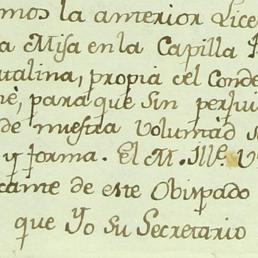 mos la anterior Lice
a Misa en la Capilla
talina, propia del Conde
nè, para que sin perjui
de nuestra voluntad s
y forma. El M. Ille. V
cante de este Obispado
que Yo su Secretario